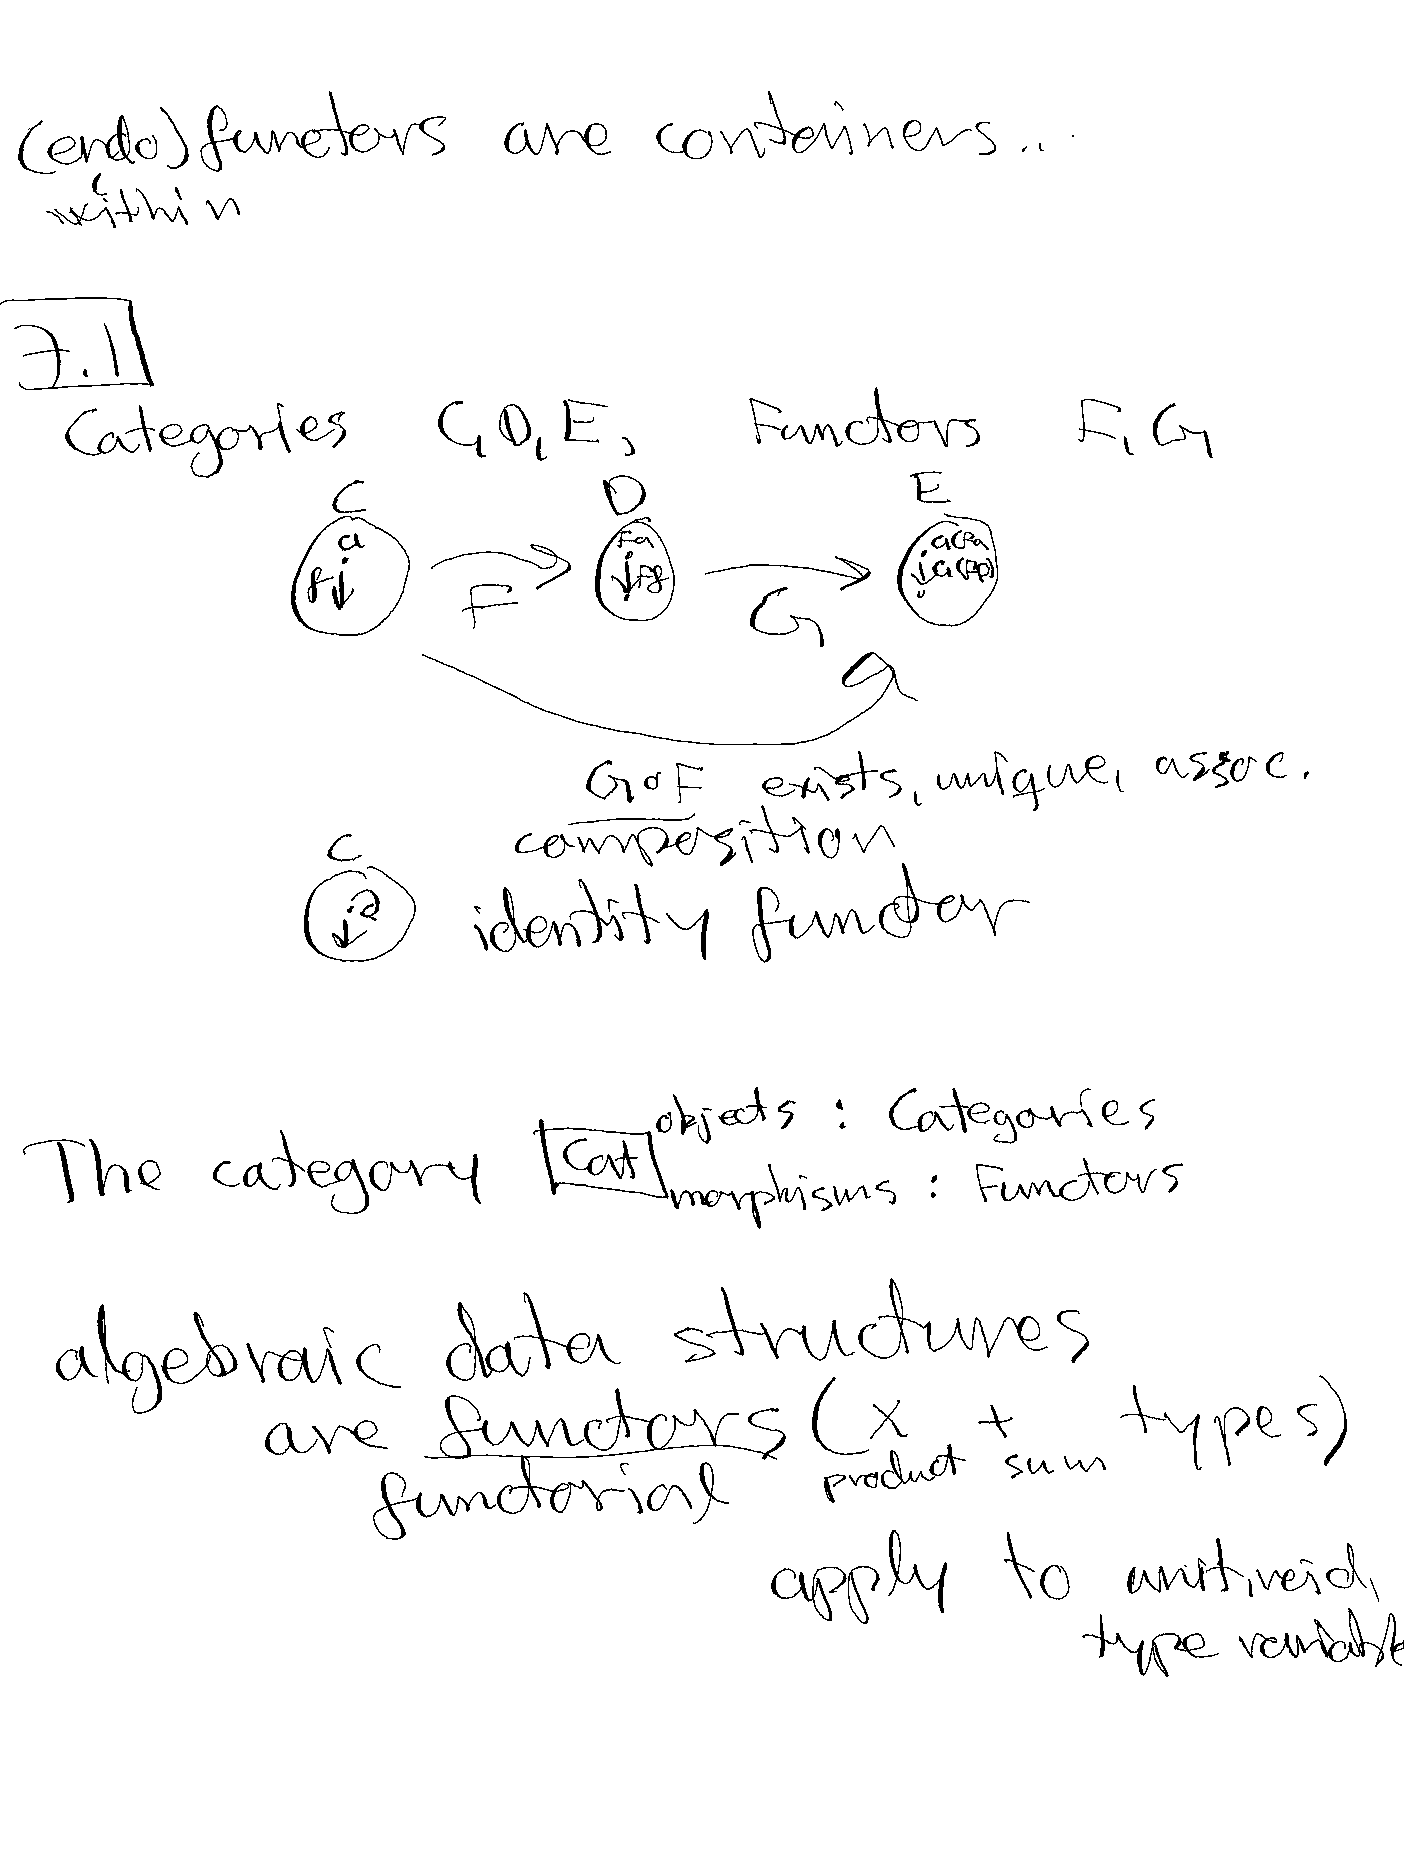 (endo) functors are containers..
within
7.1
Categories C, D, E, Functors F, G
C D E
a Fa G(Fa)
f Ff G(Ff)
F G
G∘F exists, unique, assoc.
composition
C
identity functor
objects : Categories
The category Cat
morphisms : Functors
algebraic data structures
are functors (× + types)
product sum
functorial
apply to unit, void,
type variable